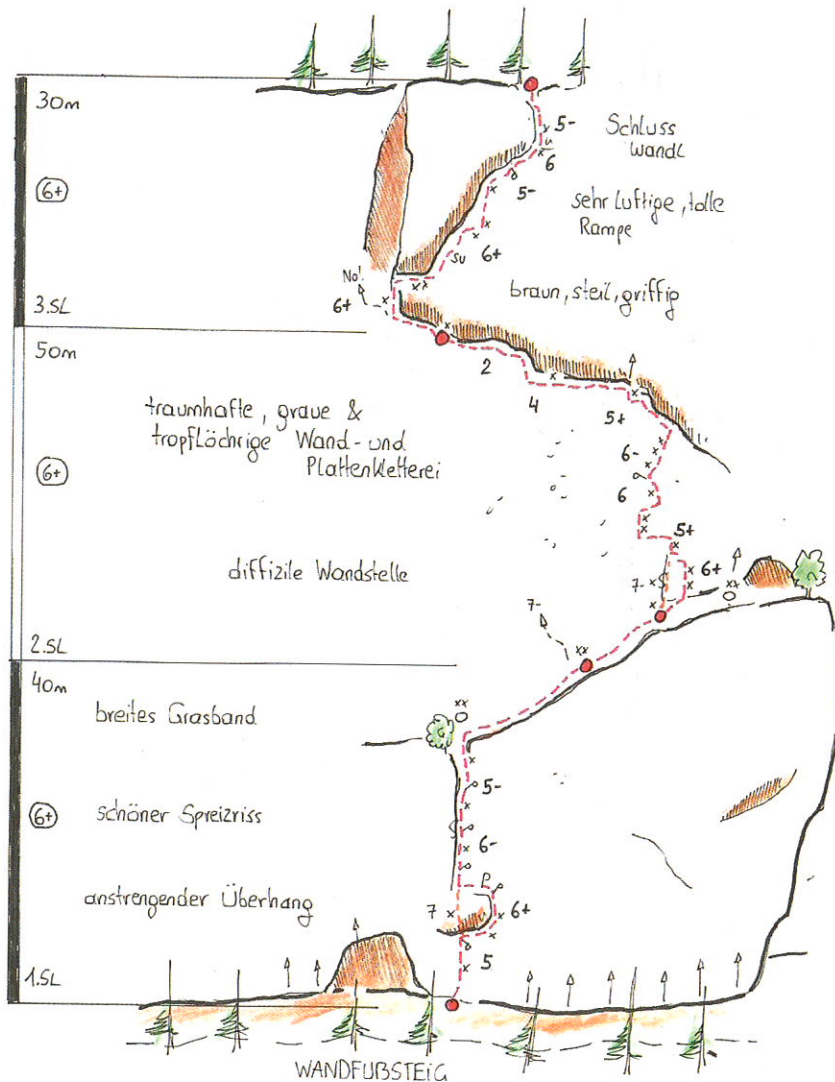 30m
5-
Schluss
wandl
6
6+
5-
sehr luftige, tolle
Rampe
su
6+
No!
6+
braun, steil, griffig
3.SL
50m
2
4
traumhafte, graue &
tropflöchrige Wand- und
Plattenkletterei
5+
6-
6+
6
5+
diffizile Wandstelle
7-
6+
7-
2.SL
40m
breites Grasband
5-
6+
schöner Spreizriss
6-
anstrengender Überhang
7
6+
5
1.SL
WANDFUßSTEIG